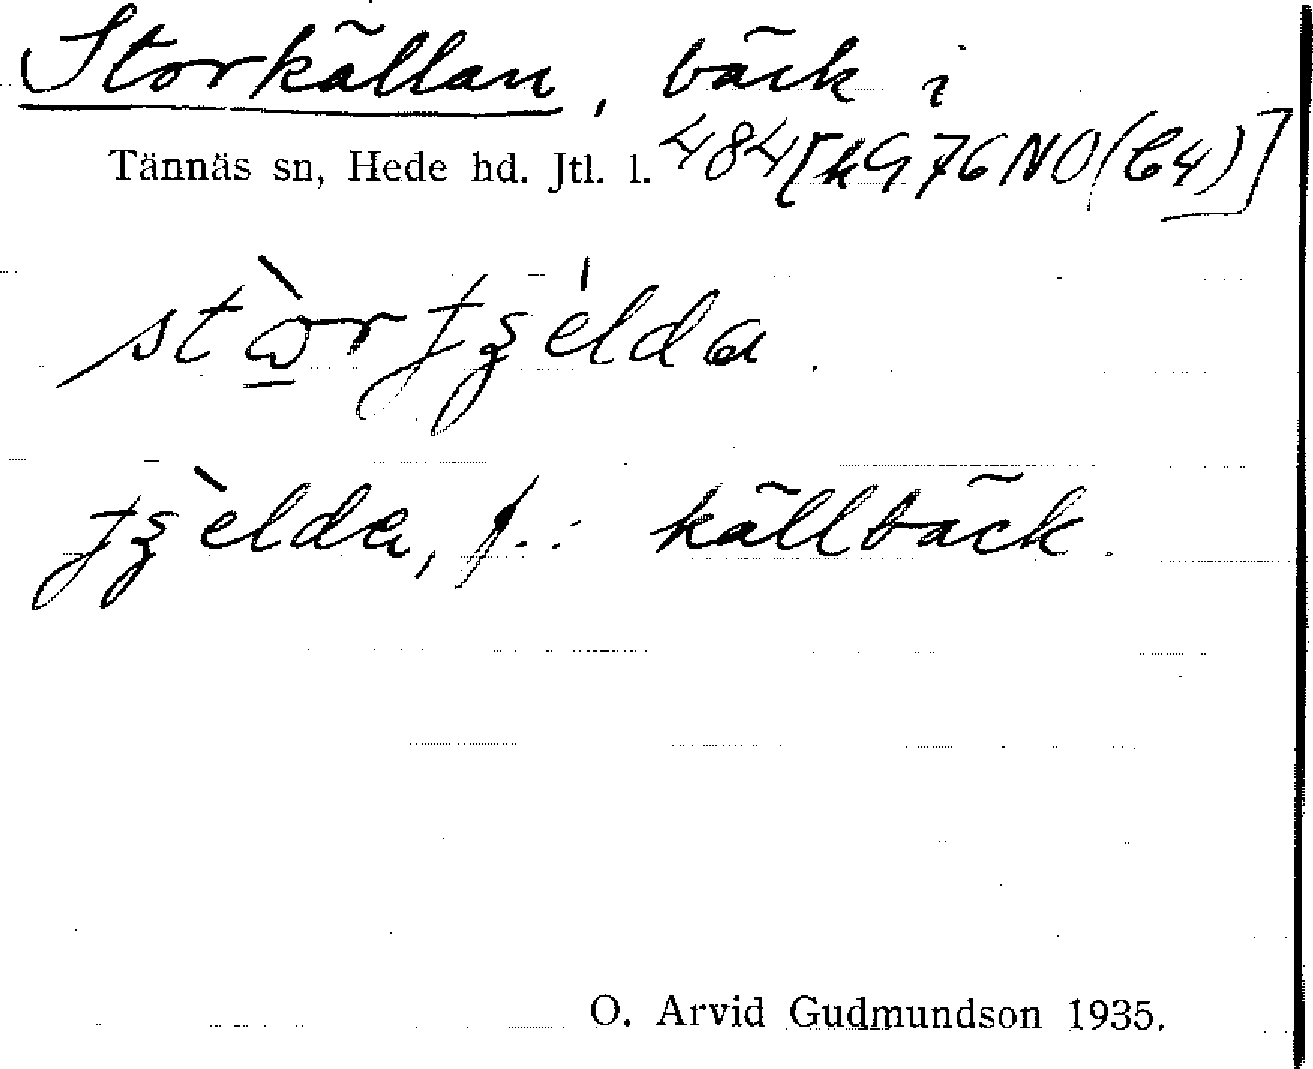 Storkällan, bäck i
Tännäs sn, Hede hd. Jtl. l. 484[kG76NO(C4)]
stὼrtʒélda.
tʒèlda, f.: källbäck.
O. Arvid Gudmundson 1935.